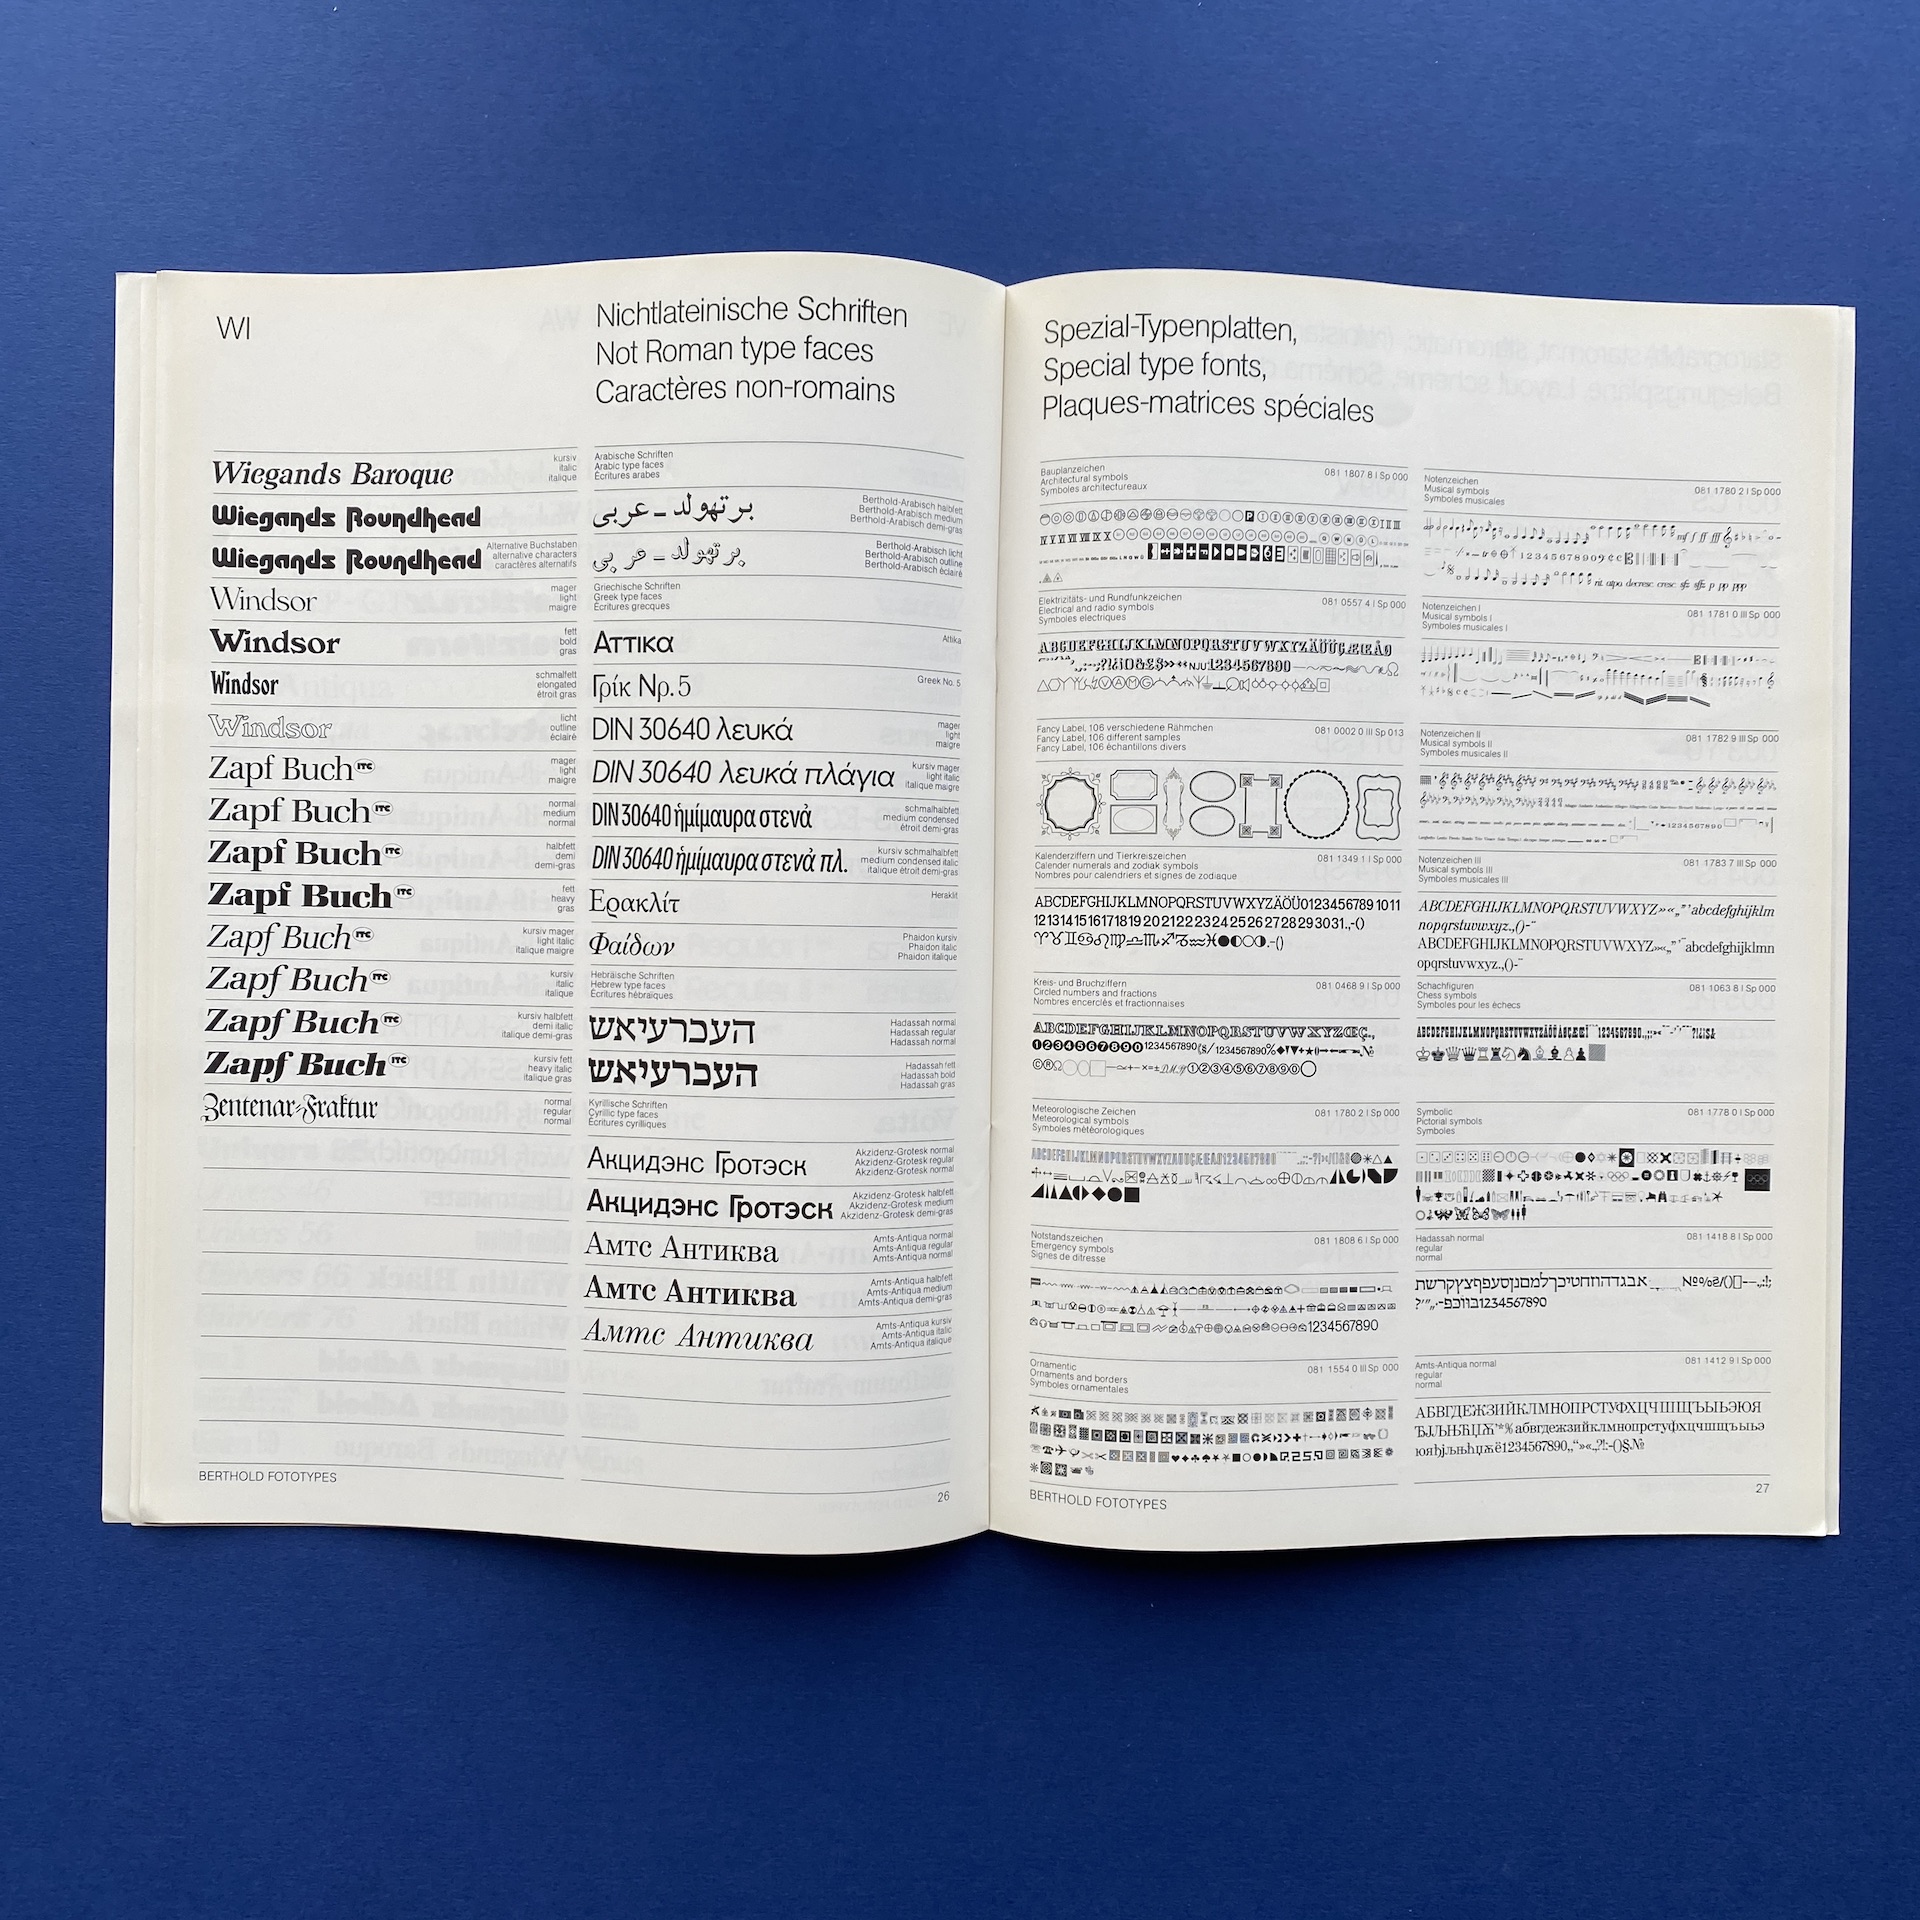 WI
Wiegands Baroque
kursiv
italic
italique
Wiegands Roundhead
Wiegands Roundhead
Alternative Buchstaben
alternative characters
caractères alternatifs
Windsor
mager
light
maigre
Windsor
fett
bold
gras
Windsor
schmalfett
elongated
étroit gras
Windsor
licht
outline
éclairé
Zapf Buch ITC
mager
light
maigre
Zapf Buch ITC
normal
medium
normal
Zapf Buch ITC
halbfett
demi
demi-gras
Zapf Buch ITC
fett
heavy
gras
Zapf Buch ITC
kursiv mager
light italic
italique maigre
Zapf Buch ITC
kursiv
italic
italique
Zapf Buch ITC
kursiv halbfett
demi italic
italique demi-gras
Zapf Buch ITC
kursiv fett
heavy italic
italique gras
Zentenar-Fraktur
normal
regular
normal
BERTHOLD FOTOTYPES
Nichtlateinische Schriften
Not Roman type faces
Caractères non-romains
Arabische Schriften
Arabic type faces
Écritures arabes
برتهولد - عربي
Berthold-Arabisch halbfett
Berthold-Arabisch medium
Berthold-Arabisch demi-gras
برتهولد - عربي
Berthold-Arabisch licht
Berthold-Arabisch outline
Berthold-Arabisch éclairé
Griechische Schriften
Greek type faces
Écritures grecques
Αττικα
Attika
Γρίκ Νρ. 5
Greek No. 5
DIN 30640 λευκά
mager
light
maigre
DIN 30640 λευκά πλάγια
kursiv mager
light italic
italique maigre
DIN 30640 ἡμίμαυρα στενά
schmalhalbfett
medium condensed
étroit demi-gras
DIN 30640 ἡμίμαυρα στενά πλ.
kursiv schmalhalbfett
medium condensed italic
italique étroit demi-gras
Ερακλίτ
Heraklit
Φαίδων
Phaidon kursiv
Phaidon italic
Phaidon italique
Hebräische Schriften
Hebrew type faces
Écritures hébraïques
העברעיאש
Hadassah normal
Hadassah regular
Hadassah normal
העברעיאש
Hadassah fett
Hadassah bold
Hadassah gras
Kyrillische Schriften
Cyrillic type faces
Écritures cyrilliques
Акцидэнс Гротэск
Akzidenz-Grotesk normal
Akzidenz-Grotesk regular
Akzidenz-Grotesk normal
Акцидэнс Гротэск
Akzidenz-Grotesk halbfett
Akzidenz-Grotesk medium
Akzidenz-Grotesk demi-gras
Амтс Антиква
Amts-Antiqua normal
Amts-Antiqua regular
Amts-Antiqua normal
Амтс Антиква
Amts-Antiqua halbfett
Amts-Antiqua medium
Amts-Antiqua demi-gras
Амтс Антиква
Amts-Antiqua kursiv
Amts-Antiqua italic
Amts-Antiqua italique
26
Spezial-Typenplatten,
Special type fonts,
Plaques-matrices spéciales
Bauplanzeichen
Architectural symbols
Symboles architectureaux
081 1807 8 I Sp 000
Elektrizitäts- und Rundfunkzeichen
Electrical and radio symbols
Symboles electriques
081 0557 4 I Sp 000
ABCDEFGHIJKLMNOPQRSTUVWXYZÄÖÜÇÆŒÅØ
1234567890
Fancy Label, 106 verschiedene Rähmchen
Fancy Label, 106 different samples
Fancy Label, 106 échantillons divers
081 0002 0 III Sp 013
Kalenderziffern und Tierkreiszeichen
Calender numerals and zodiak symbols
Nombres pour calendriers et signes de zodiaque
081 1349 1 I Sp 000
ABCDEFGHIJKLMNOPQRSTUVWXYZÄÖÜ0123456789 10 11
12 13 14 15 16 17 18 19 20 21 22 23 24 25 26 27 28 29 30 31.,-()
♈♉♊♋♌♍♎♏♐♑♒♓●◐○◑.-()
Kreis- und Bruchziffern
Circled numbers and fractions
Nombres encerclés et fractionnaises
081 0468 9 I Sp 000
ABCDEFGHIJKLMNOPQRSTUVWXYZŒÇ.,
❶❷❸❹❺❻❼❽❾⓿1234567890
①②③④⑤⑥⑦⑧⑨
Meteorologische Zeichen
Meteorological symbols
Symboles météorologiques
081 1780 2 I Sp 000
Notstandszeichen
Emergency symbols
Signes de ditresse
081 1808 6 I Sp 000
1234567890
Ornamentic
Ornaments and borders
Symboles ornamentales
081 1554 0 III Sp 000
BERTHOLD FOTOTYPES
Notenzeichen
Musical symbols
Symboles musicales
081 1780 2 I Sp 000
Notenzeichen I
Musical symbols I
Symboles musicales I
081 1781 0 III Sp 000
Notenzeichen II
Musical symbols II
Symboles musicales II
081 1782 9 III Sp 000
Notenzeichen III
Musical symbols III
Symboles musicales III
081 1783 7 III Sp 000
ABCDEFGHIJKLMNOPQRSTUVWXYZ»«„”’abcdefghijklm
nopqrstuvwxyz.,()-
ABCDEFGHIJKLMNOPQRSTUVWXYZ»«„”’abcdefghijklmn
opqrstuvwxyz.,()-
Schachfiguren
Chess symbols
Symboles pour les échecs
081 1063 8 I Sp 000
Symbolic
Pictorial symbols
Symboles
081 1778 0 I Sp 000
Hadassah normal
regular
normal
081 1418 8 I Sp 000
אבגדהוזחטיכךלמםנןסעפףצץקרשת
1234567890
Amts-Antiqua normal
regular
normal
081 1412 9 I Sp 000
АБВГДЕЖЗИЙКЛМНОПРСТУФХЦЧШЩЪЫЬЭЮЯ
абвгдежзийклмнопрстуфхцчшщъыьэ
юя
1234567890
27